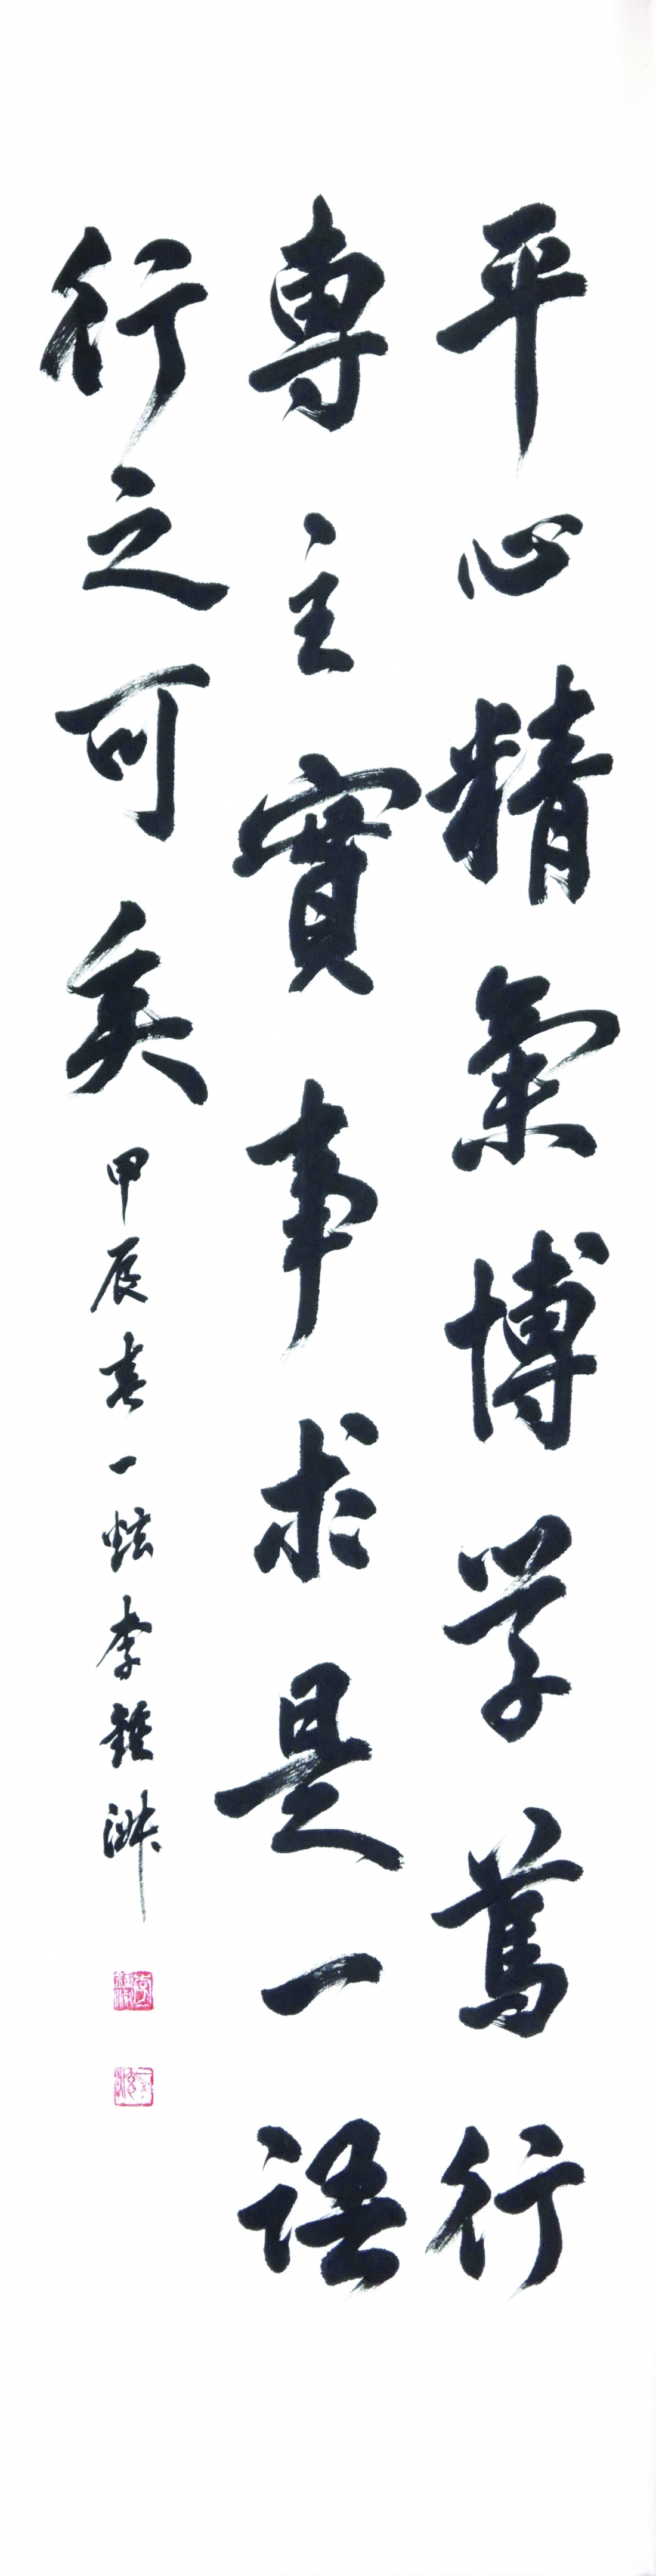 平心精氣博学篤行
專主實事求是一語
行之可矣
甲辰春一炫李鍾洙